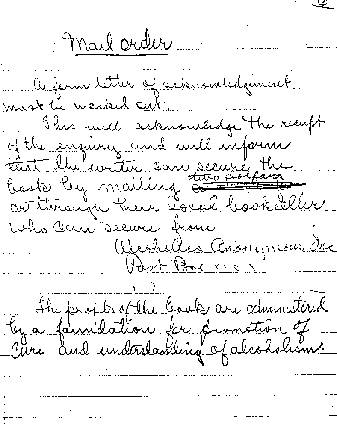 Mail order
A form letter of acknowledgement
must be worked out
This will acknowledge the receipt
of the enquiry and will inform
that the writer can secure the
book by mailing two dollars
or through their local bookseller
who can secure from
Alcoholics Anonymous Inc
Post Box x x x
The profits of the book are administered
by a foundation for promotion of
cure and understanding of alcoholism.